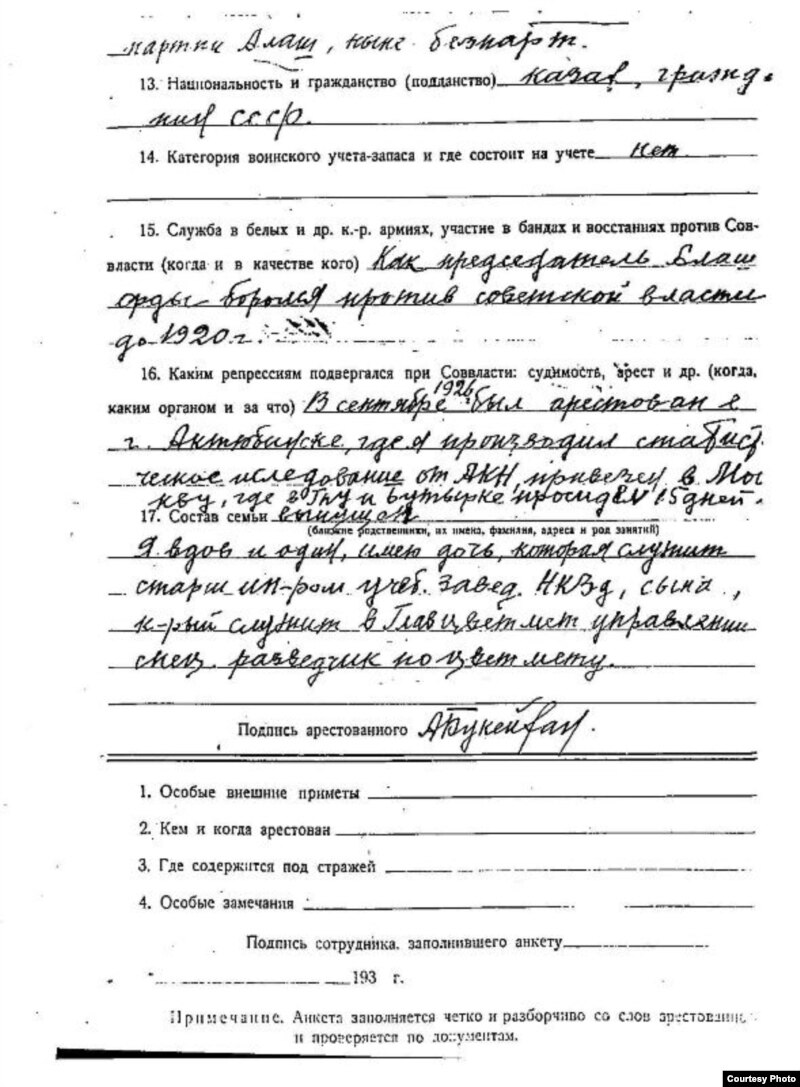 партии Алаш, ныне безпарт.
13. Национальность и гражданство (подданство) казак, гражд.
нин СССР.
14. Категория воинского учета-запаса и где состоит на учете нет
15. Служба в белых и др. к.-р. армиях, участие в бандах и восстаниях против Сов-
власти (когда и в качестве кого) Как председатель Алаш
орды боролся против советской власти
до 1920 г.
16. Каким репрессиям подвергался при Соввласти: судимость, арест и др. (когда,
каким органом и за что) В сентябре 1926 был арестован в
г. Актюбинске, где я производил статист.
ческое иследование от АКН, привезен в Мос
кву, где в ГПУ и Бутырке просидел 15 дней.
17. Состав семьи выпущен
(близкие родственники, их имена, фамилия, адреса и род занятий)
Я вдов и один, имею дочь, которая служит
старш ин-ром учеб. завед. НКЗд, сына,
к-рый служит в Главцветмет управлении
спец. разведчик по цветмету.
Подпись арестованного АБукейхан.
1. Особые внешние приметы
2. Кем и когда арестован
3. Где содержится под стражей
4. Особые замечания
Подпись сотрудника, заполнившего анкету
" 193 г.
Примечание. Анкета заполняется четко и разборчиво со слов арестованно
и проверяется по документам.
Courtesy Photo